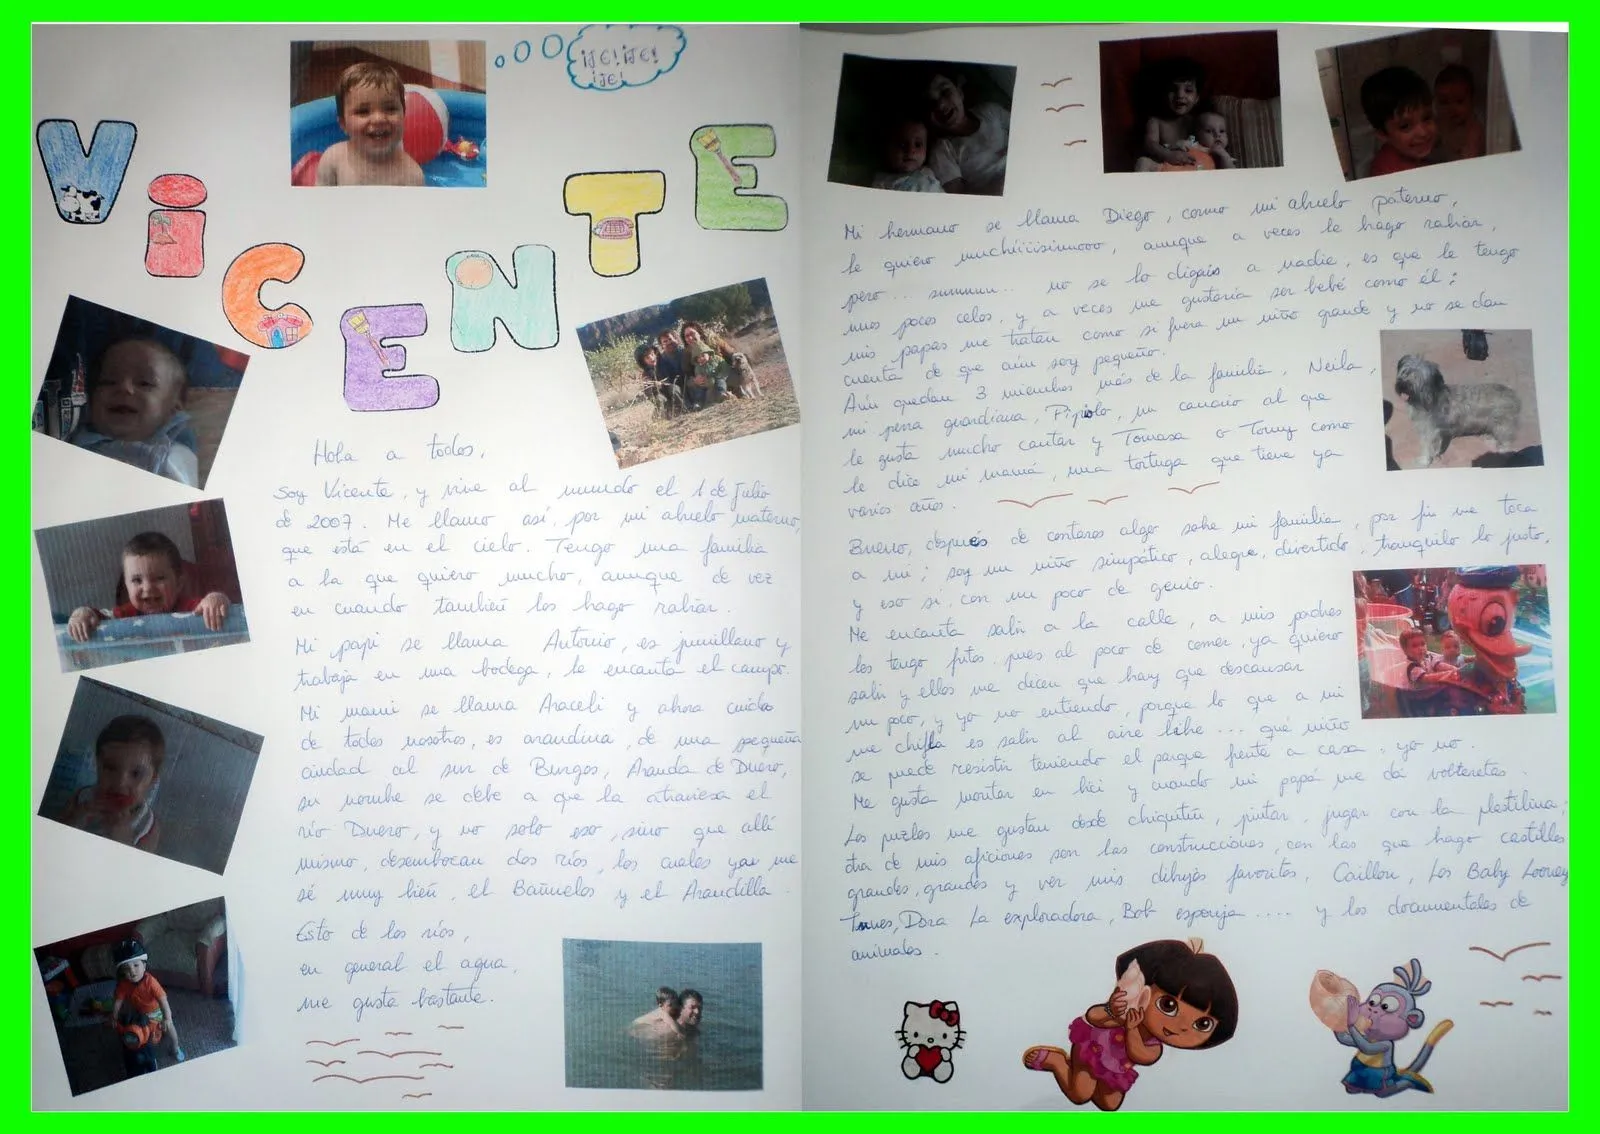 ¡JE! ¡JE!
¡JE!
VICENTE
Hola a todos,
Soy Vicente, y vine al mundo el 1 de Julio
de 2007. Me llamo así, por mi abuelo materno,
que está en el cielo. Tengo una familia
a la que quiero mucho, aunque de vez
en cuando también los hago rabiar.
Mi papi se llama Antonio, es jumillano y
trabaja en una bodega, le encanta el campo.
Mi mami se llama Araceli y ahora cuida
de todos nosotros, es arandina, de una pequeña
ciudad al sur de Burgos, Aranda de Duero,
su nombre se debe a que la atraviesa el
río Duero, y no solo eso, sino que allí
mismo, desembocan dos ríos, los cuales ya me
sé muy bien, el Bañuelos y el Arandilla.
Esto de los ríos,
en general el agua,
me gusta bastante.
Mi hermano se llama Diego, como mi abuelo paterno,
le quiero muchíiiisimoooo, aunque a veces le hago rabiar,
pero... summm.. no se lo digáis a nadie, es que le tengo
unos pocos celos, y a veces me gustaría ser bebé como él;
mis papas me tratan como si fuera un niño grande y no se dan
cuenta de que aún soy pequeño.
Aún quedan 3 miembros más de la familia, Neila,
mi perra guardiana, Pipolo, un canario al que
le gusta mucho cantar y Tomasa o Tomy como
le dice mi mamá, una tortuga que tiene ya
varios años.
Bueno, después de contaros algo sobre mi familia, por fin me toca
a mi; soy un niño simpático, alegre, divertido, tranquilo lo justo,
y eso sí, con un poco de genio.
Me encanta salir a la calle, a mis padres
los tengo fritos, pues al poco de comer, ya quiero
salir y ellos me dicen que hay que descansar
un poco, y yo no entiendo, porque lo que a mi
me chifla es salir al aire libre... qué niño
se puede resistir teniendo el parque frente a casa, yo no.
Me gusta montar en bici y cuando mi papá me dá volteretas.
Los puzles me gustan desde chiquitín, pintar, jugar con la plastilina;
otra de mis aficiones son las construcciones, con las que hago castillos
grandes, grandes y ver mis dibujos favoritos, Caillou, Los Baby Looney
Tunes, Dora La exploradora, Bob esponja .... y los documentales de
animales.